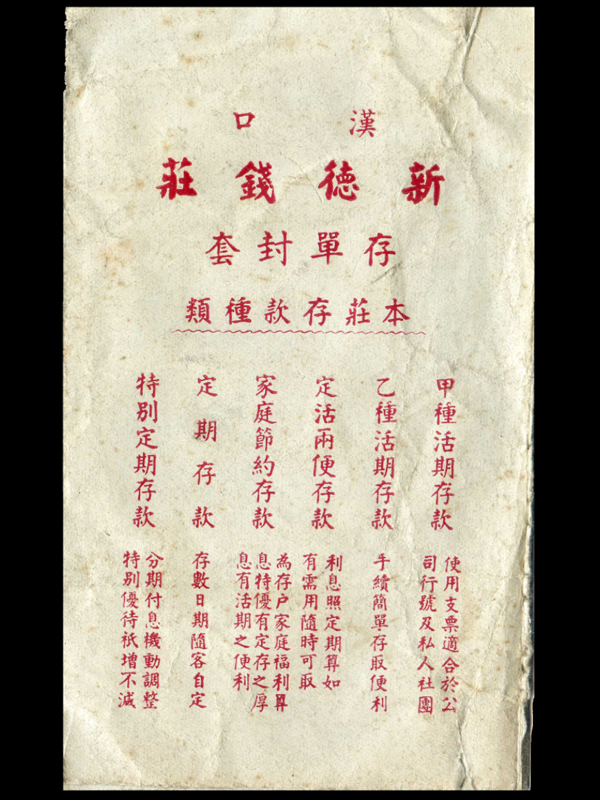 漢口
新德錢莊
存單封套
本莊存款種類
甲種活期存款
使用支票適合於公
司行號及私人社團
乙種活期存款
手續簡單存取便利
定活兩便存款
利息照定期算如
有需用隨時可取
家庭節約存款
為存户家庭福利算
息特優有定存之厚
息有活期之便利
定期存款
存數日期隨客自定
特別定期存款
分期付息機動調整
特別優待祇增不減